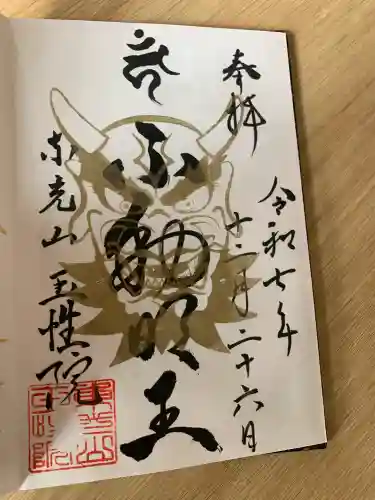 奉拝
令和七年
十二月二十六日
不動明王
東光山 玉性院